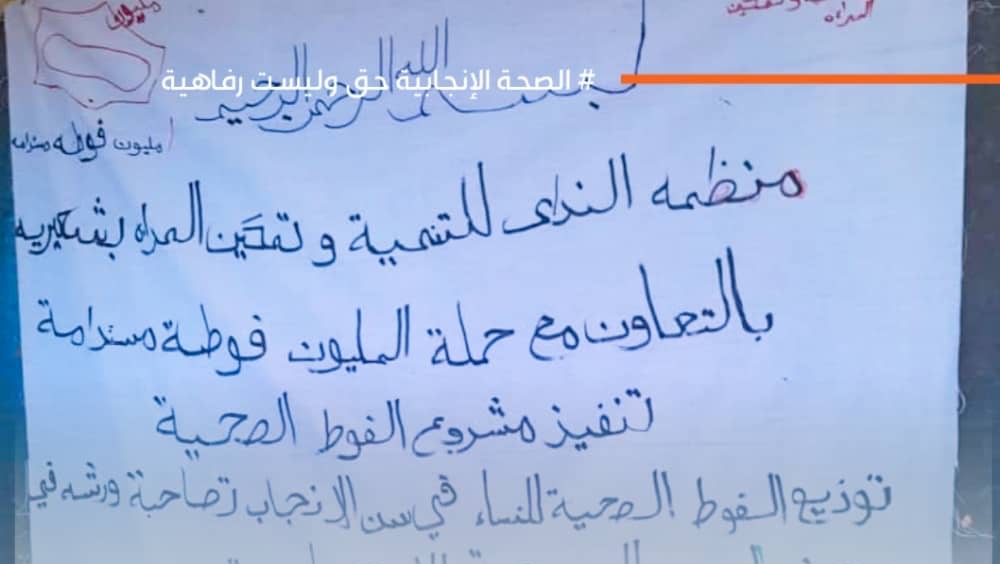 مليون
وتمكين
المراه
# الصحة الإنجابية حق وليست رفاهية
بسم الله الرحمن الرحيم
مليون فوطه مستدامه
منظمه النداء للتنمية وتمكين المراه بشعيريه
بالتعاون مع حملة المليون فوطة مستدامة
تنفيذ مشروع الفوط الصحية
توزيع الفوط الصحية للنساء في سن الانجاب تصاحبة ورشه في